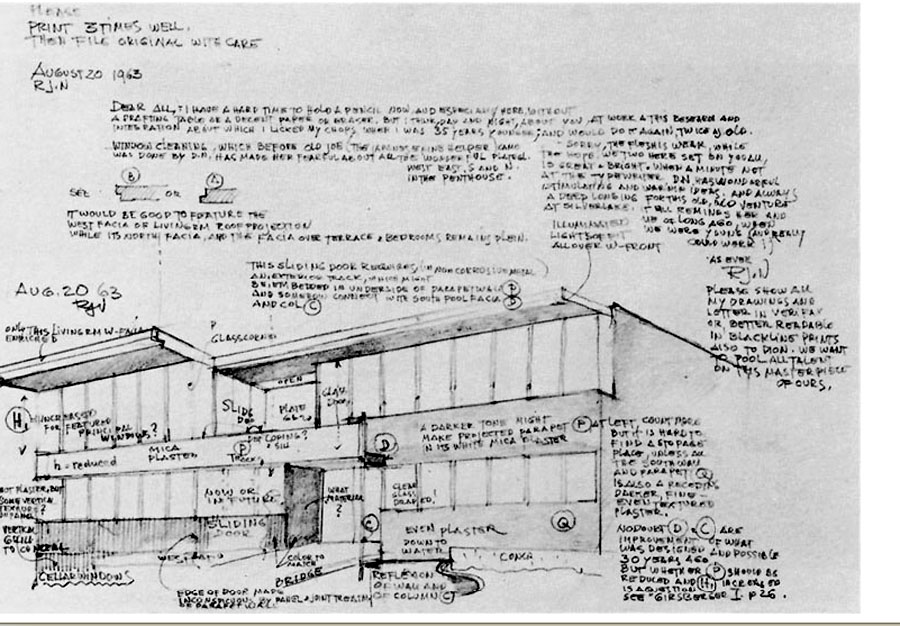 PLEASE
PRINT 3 TIMES WELL.
THEN FILE ORIGINAL WITH CARE
AUGUST 20 1963
RJ.N
DEAR ALL, : I HAVE A HARD TIME TO HOLD A PENCIL NOW AND ESPECIALLY HERE, WITHOUT
A DRAFTING TABLE OR A DECENT PAPER OR ERASER. BUT I THINK, DAY AND NIGHT, ABOUT YOU, AT WORK & THIS RESEARCH AND
INTEGRATION ABOUT WHICH I LICKED MY CHOPS WHEN I WAS 35 YEARS YOUNGER; AND WOULD DO IT AGAIN, TWICE AS OLD.
WINDOW CLEANING, WHICH BEFORE OLD JOE (THE JAPANESE HELPER) CAME
WAS DONE BY D.N. HAS MADE HER FEARFUL ABOUT ALL THE WONDERFUL PLATEGL.
WEST EAST, S AND N.
IN THE PENTHOUSE.
SORRY, THE FLESH IS WEAK, WHILE
THE HOPE, WE TWO HERE SET ON YOU ALL,
IS GREAT & BRIGHT. WHEN A MINUTE NOT
AT THE TYPEWRITER D.N. HAS WONDERFUL
STIMULATING AND WARNING IDEAS. AND ALWAYS
A DEEP LONGING FOR THIS OLD, OLD VENTURE
AT SILVERLAKE. IT ALL REMINDS HER AND
ME OF LONG AGO, WHEN
WE WERE YOUNG (AND REALLY
COULD WORK!)
AS EVER
RJ.N
SEE B OR A
IT WOULD BE GOOD TO FEATURE THE
WEST FACIA OF LIVING RM ROOF PROJECTION
WHILE ITS NORTH FACIA, AND THE FACIA OVER TERRACE & BEDROOMS REMAINS PLEIN.
ILLUMINATED
LIGHT SOFFIT
ALL OVER W-FRONT
THIS SLIDING DOOR REQUIRES, (IN NONCORROSIVE METAL)
AN EXTERIOR TRACK, WHICH MIGHT
BE IMBEDDED IN UNDERSIDE OF PARAPET WALL P
AND SOMEHOW CONNECT WITH SOUTH POOL FACIA D
AND COL. C
AUG. 20 63
RJN
PLEASE SHOW ALL
MY DRAWINGS AND
LETTER IN VERIFAX
OR, BETTER READABLE
IN BLACKLINE PRINTS
ALSO TO DION. WE WANT
TO POOL ALL TALENT
ON THIS MASTERPIECE
OF OURS.
ONLY THIS LIVING RM W-FACIA
ENRICHED
P
GLASS CORNER
OPEN
PLATE
GL.
GLASS
DOOR
SLIDE
H INCREASED
FOR FEATURED
PRINCIPAL
WINDOWS?
MICA
PLASTER
h = reduced
COPING?
SILL
P
TRACK
D
A DARKER TONE MIGHT
MAKE PROJECTED PARAPET
IN ITS WHITE MICA PLASTER
P AT LEFT, COUNT MORE
BUT IT IS HARD TO
FIND A STOPPAGE
PLACE, UNLESS ALL
THE SOUTH WALL
AND PARAPET Q
IS ALSO A RECEDING
DARKER, FINE
EVEN TEXTURED
PLASTER.
NOT PLASTER, BUT
SOME VERTICAL
TEXTURE?
OR PANEL
VERTICAL
GRILL
TO CONCEAL
CELLAR WINDOWS
NOW OR
IN FUTURE
SLIDING
DOOR
WHAT
MATERIAL
?
CLEAR
GLASS
DRAPED!
C
EVEN PLASTER
DOWN TO
WATER
Q
COLOR TO
MATCH
BRIDGE
EDGE OF DOOR MADE
INCONSPICUOUS BY PANEL & JOINT TREATM.
REFLEXION
OF WALL AND
OF COLUMN C
NO DOUBT D & C ARE
IMPROVEMENT OF WHAT
WAS DESIGNED AND POSSIBLE
30 YEARS AGO.
BUT WHETHER P SHOULD BE
REDUCED AND H INCREASED
IS A QUESTION
SEE "GIRSBERGER" I. P 26.